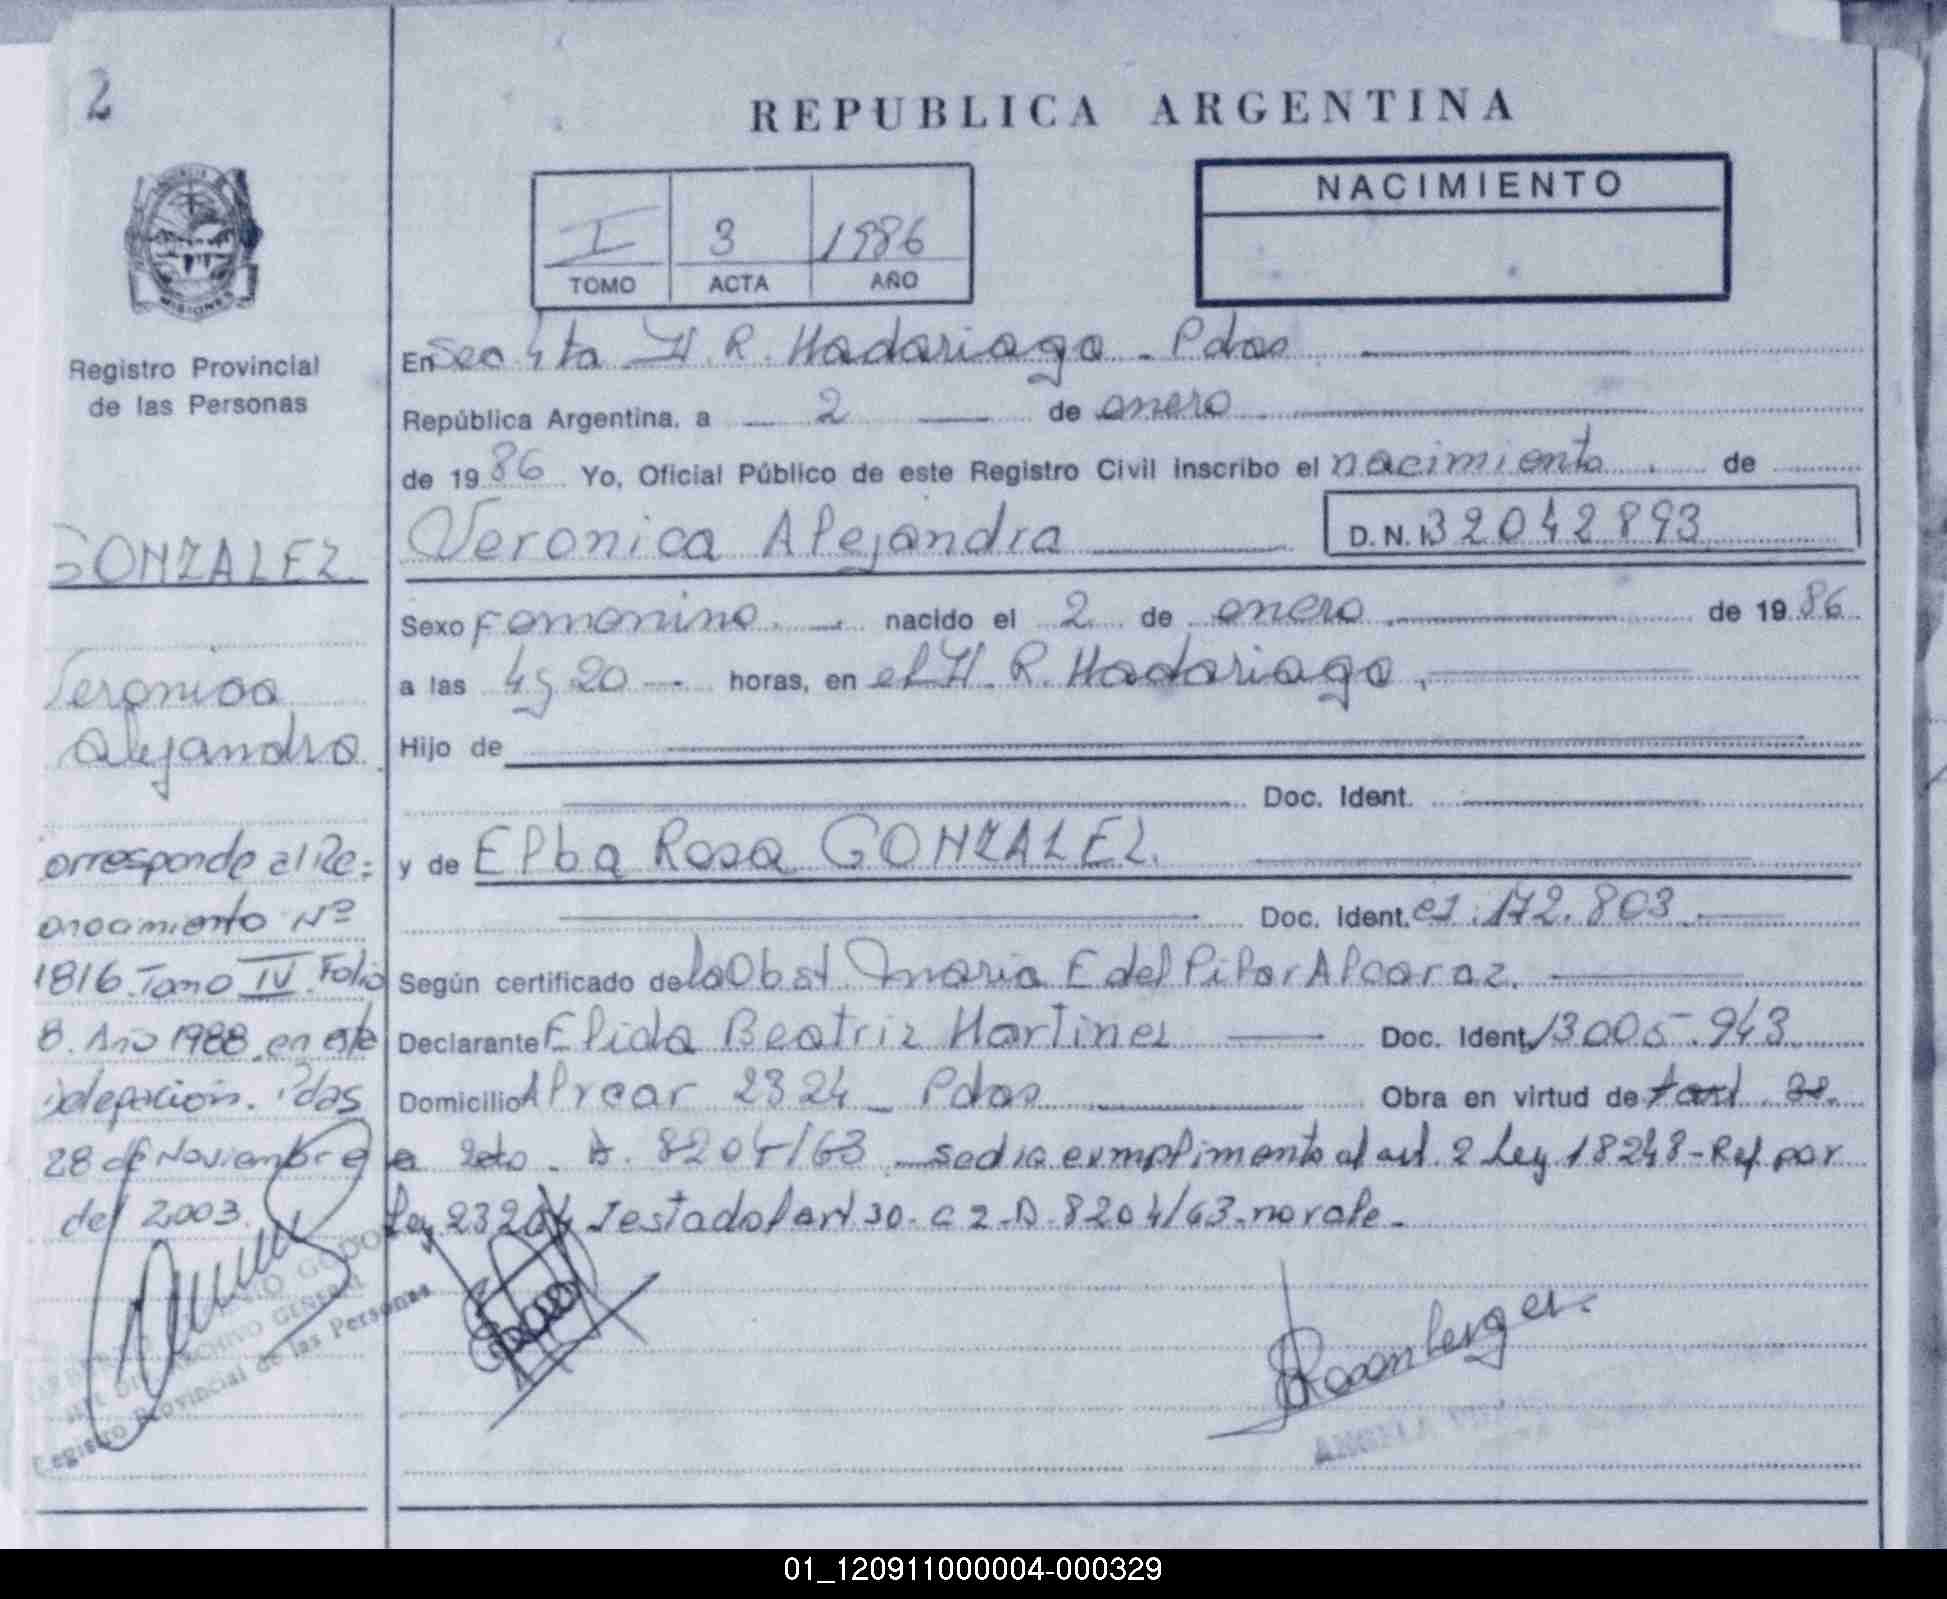 2
REPUBLICA ARGENTINA
NACIMIENTO
I 3 1986
TOMO ACTA AÑO
MISIONES
Registro Provincial
de las Personas
GONZALEZ
Veronica
Alejandra
orresponde al Re=
onocimiento Nº
1816. Tomo IV. Folio
8. Año 1988. en esta
delegación. Pdas
28 de Noviembre
del 2003.
ARCHIVO GENERAL
Registro Provincial de las Personas
En Sec 4ta H. R. Madariaga - Pdas
República Argentina, a 2 de enero
de 1986 Yo, Oficial Público de este Registro Civil inscribo el nacimiento de
Veronica Alejandra D.N.I. 32042893
Sexo Femenino nacido el 2 de enero de 1986
a las 4 y 20 horas, en el H. R. Madariaga,
Hijo de
Doc. Ident.
y de Elba Rosa GONZALEZ.
Doc. Ident. 172.803
Según certificado de la Obst. Maria E del Pilar Alcaraz.
Declarante Elida Beatriz Martinez Doc. Ident. 13005.943
Domicilio Alvear 2324 - Pdas Obra en virtud de
8204/63 se dio cumplimento al art. 2 Ley 18248 - Ref. por
Ley 23204 Testado art 30. c 2. D. 8204/63. no vale.
Rosemberger
ANGELA
01_120911000004-000329